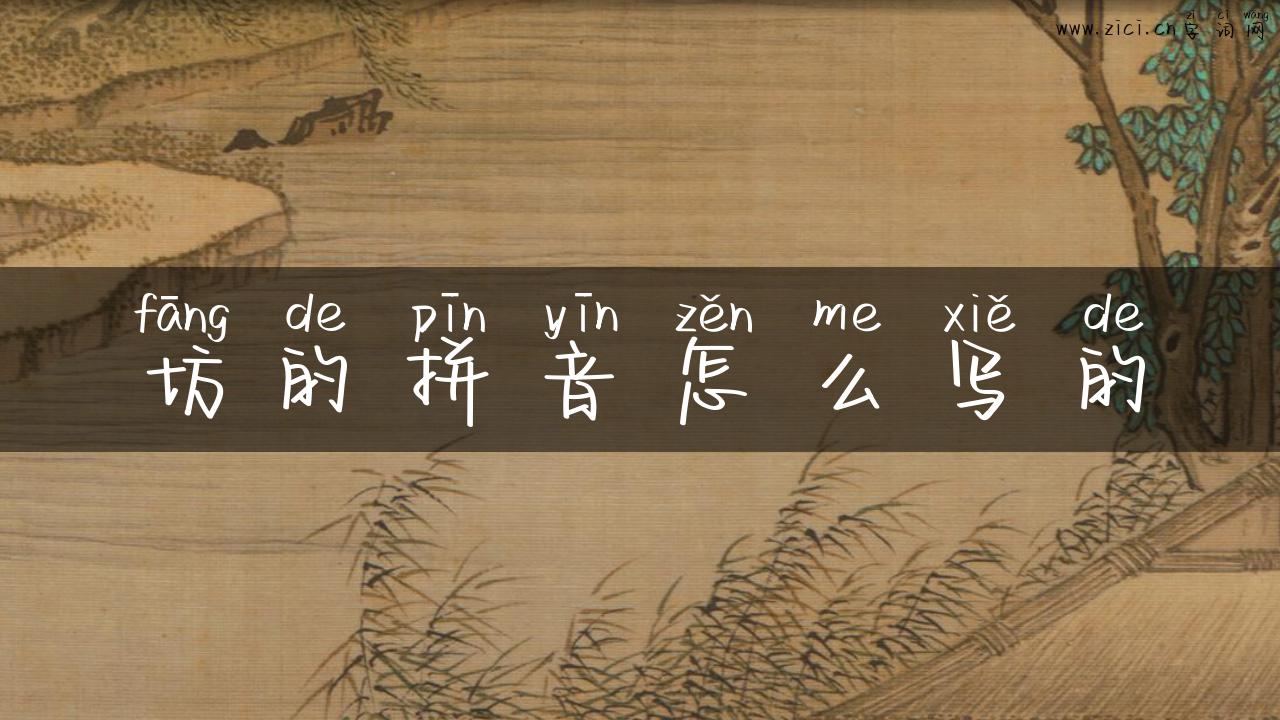 zì cí wǎng
www.zici.cn 字词网
fāng de pīn yīn zěn me xiě de
坊的拼音怎么写的